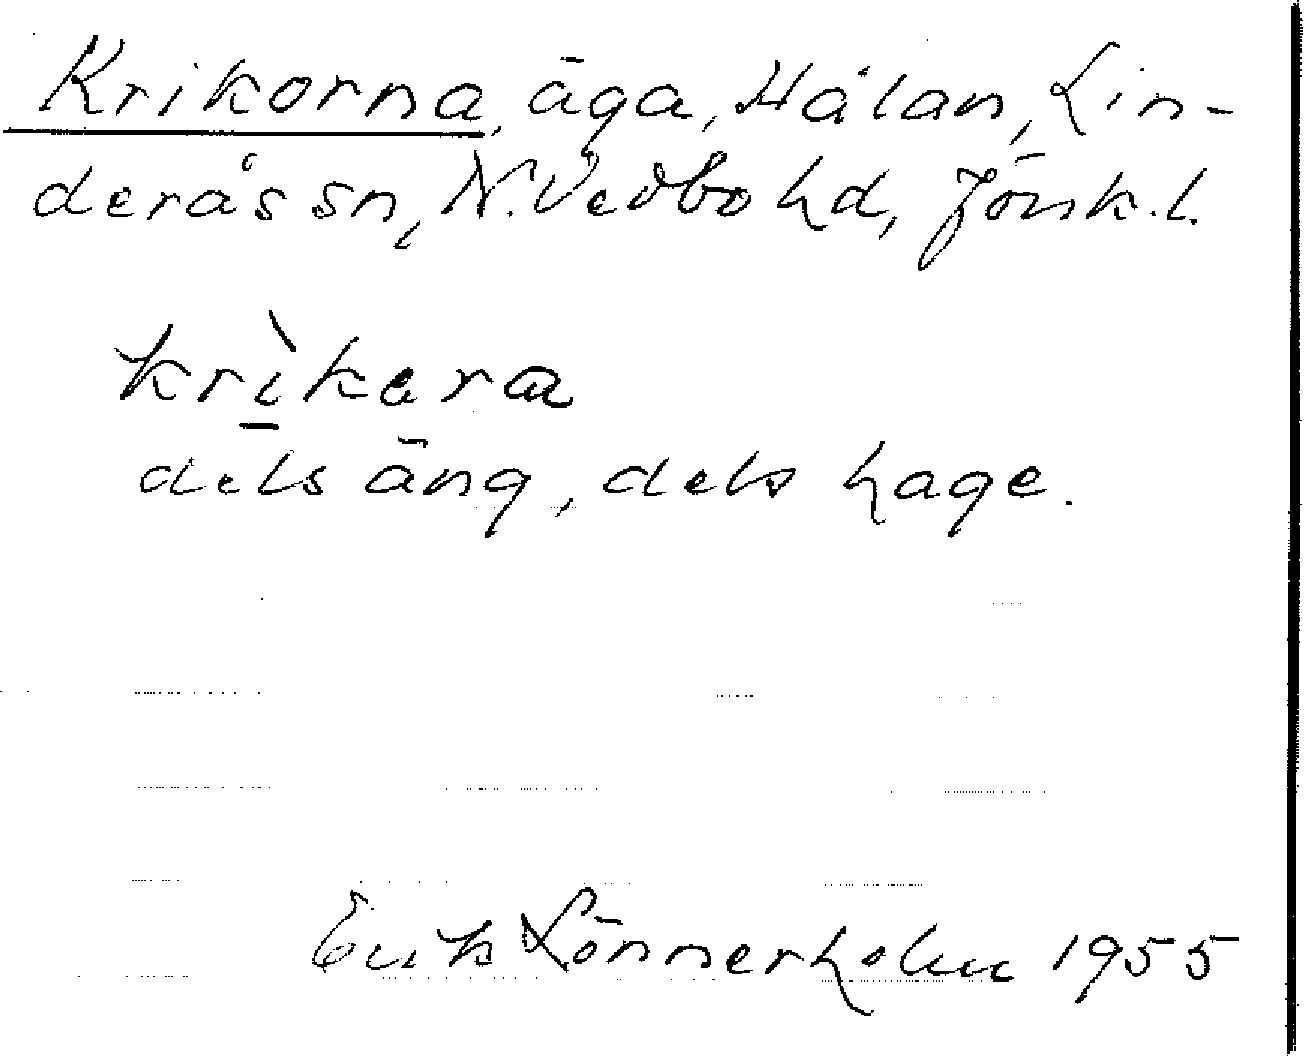 Krikorna, äga, Hålan, Lin-
deråssn, N. Vedbo hd, Jönk. l.
krìkera
dels äng, dels hage.
Erik Lönnerholm 1955